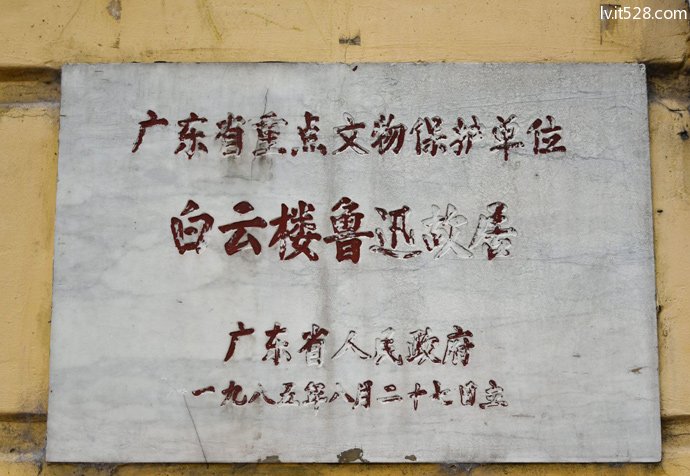 lvit528.com
广东省重点文物保护单位
白云楼鲁迅故居
广东省人民政府
一九八五年八月二十七日立